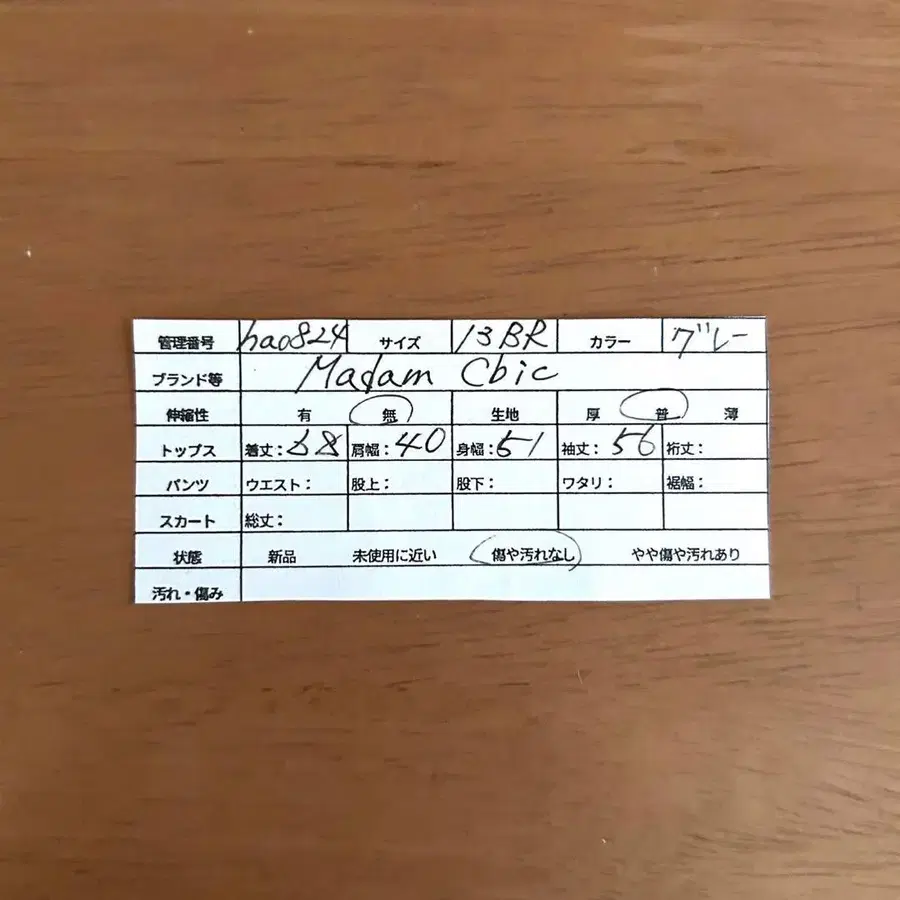 管理番号 hao824 サイズ 13BR カラー グレー
ブランド等 Madam Cbic
伸縮性 有 無 生地 厚 普 薄
トップス 着丈: 肩幅:40 身幅:51 袖丈:56 裄丈:
パンツ ウエスト: 股上: 股下: ワタリ: 裾幅:
スカート 総丈:
状態 新品 未使用に近い 傷や汚れなし やや傷や汚れあり
汚れ・傷み